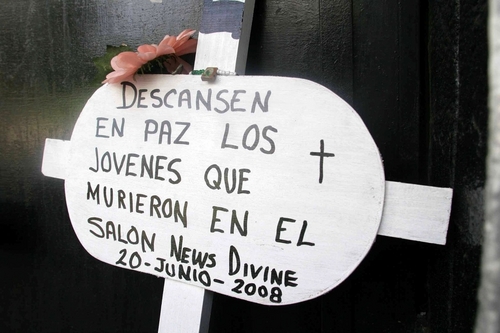 DESCANSEN
EN PAZ LOS
JOVENES QUE
MURIERON EN EL
SALON NEWS DIVINE
20-JUNIO-2008